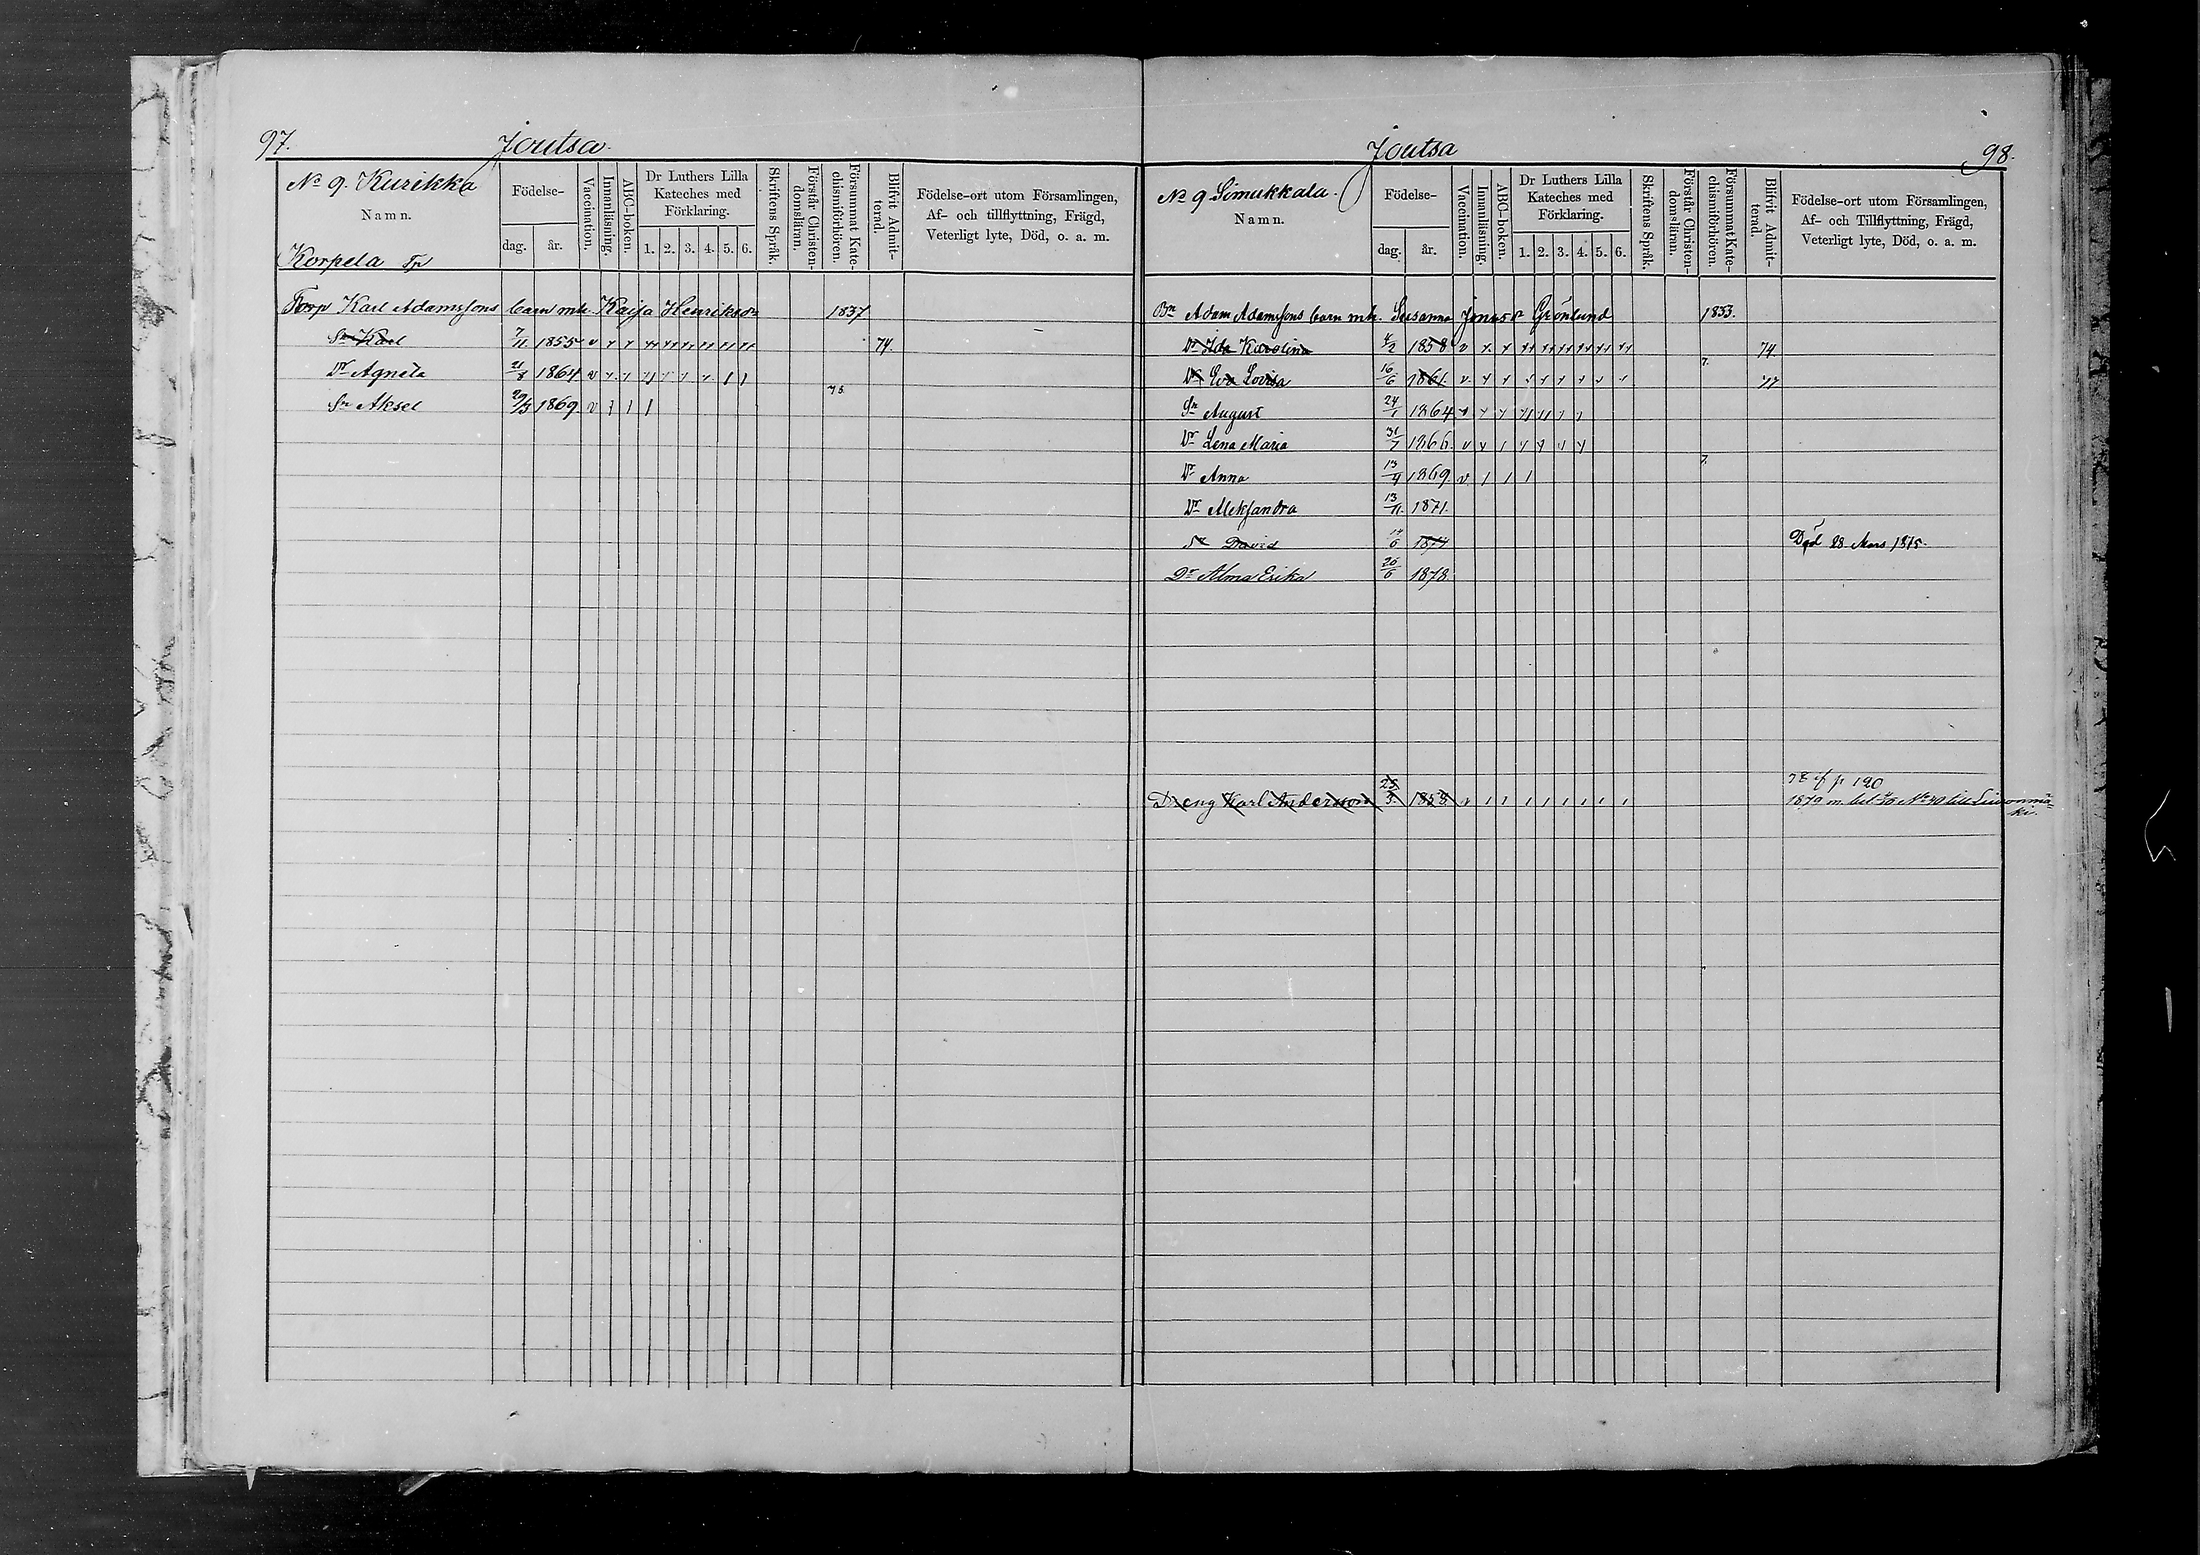 97.
Joutsa.
No 9. Kurikka
Namn.
Korpela Tp
Födelse-
dag. år.
Vaccination.
Innanläsning.
ABC-boken.
Dr Luthers Lilla Kateches med Förklaring.
1. 2. 3. 4. 5. 6.
Skriftens Språk.
Förstår Christendomsläran.
Försummat Katechismiförhören.
Blifvit Admitterad.
Födelse-ort utom Församlingen,
Af- och tillflyttning, Frägd,
Veterligt lyte, Död, o. a. m.
Torp Karl Adamssons barn m. h. Kaisa Henriksdr 1837
Sn Karl 7/11 1855 v 74.
Dr Agneta 21/8 1864 v
Sn Aksel 29/3 1869 v 78.
Joutsa
98.
No 9 Simukkala.
Namn.
Födelse-
dag. år.
Vaccination.
Innanläsning.
ABC-boken.
Dr Luthers Lilla Kateches med Förklaring.
1. 2. 3. 4. 5. 6.
Skriftens Språk.
Förstår Christendomsläran.
Försummat Katechismiförhören.
Blifvit Admitterad.
Födelse-ort utom Församlingen,
Af- och Tillflyttning, Frägd,
Veterligt lyte, Död, o. a. m.
Bn Adam Adamssons barn m. h. Susanna Jonasdr Grönlund 1833.
Dr Ida Karolina 4/2 1858 v 74
Dr Eva Lovisa 16/6 1861. v 7. 77
Sn August 24/1 1864
Dr Lena Maria 31/7 1866 v
Dr Anna 13/4 1869 v 7.
Dr Aleksandra 13/11. 1871.
Sn David 14/6 1874 Död 28 Mars 1875.
Dr Alma Erika 26/6 1878
fr p 190
Dreng Karl Andersson 25/3. 1858 v 1879 m. bet No 40 till Suonmäki.